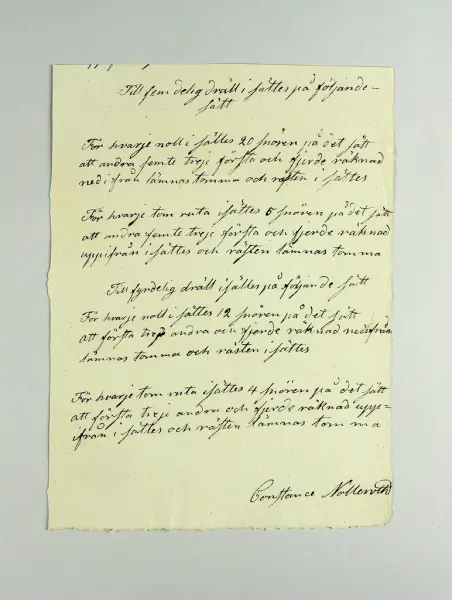 Till fem delig dräll i sättes på följande-
sätt
För hvarje noll i sättes 20 snören på det sätt
att andra femte treje första och fjerde räknad
ned i från lämnas tomma och rästen i sättes
För hvarje tom ruta i sättes 5 snören på det sätt
att andra femte treje första och fjerde räknad
uppifrån i sättes och rästen lämnas tom ma
Till fyrdelig dräll i sättes på följande sätt
För hvarje noll i sättes 12 snören på det sätt
att första treje andra och fjerde räknad nedifrån
lämnas tomma och rästen i sättes
För hvarje tom ruta i sättes 4 snören på det sätt
att första treje andra och fjerde räknad upp=
ifrån i sättes och rästen lämnas tom ma
Constance Nolleroth